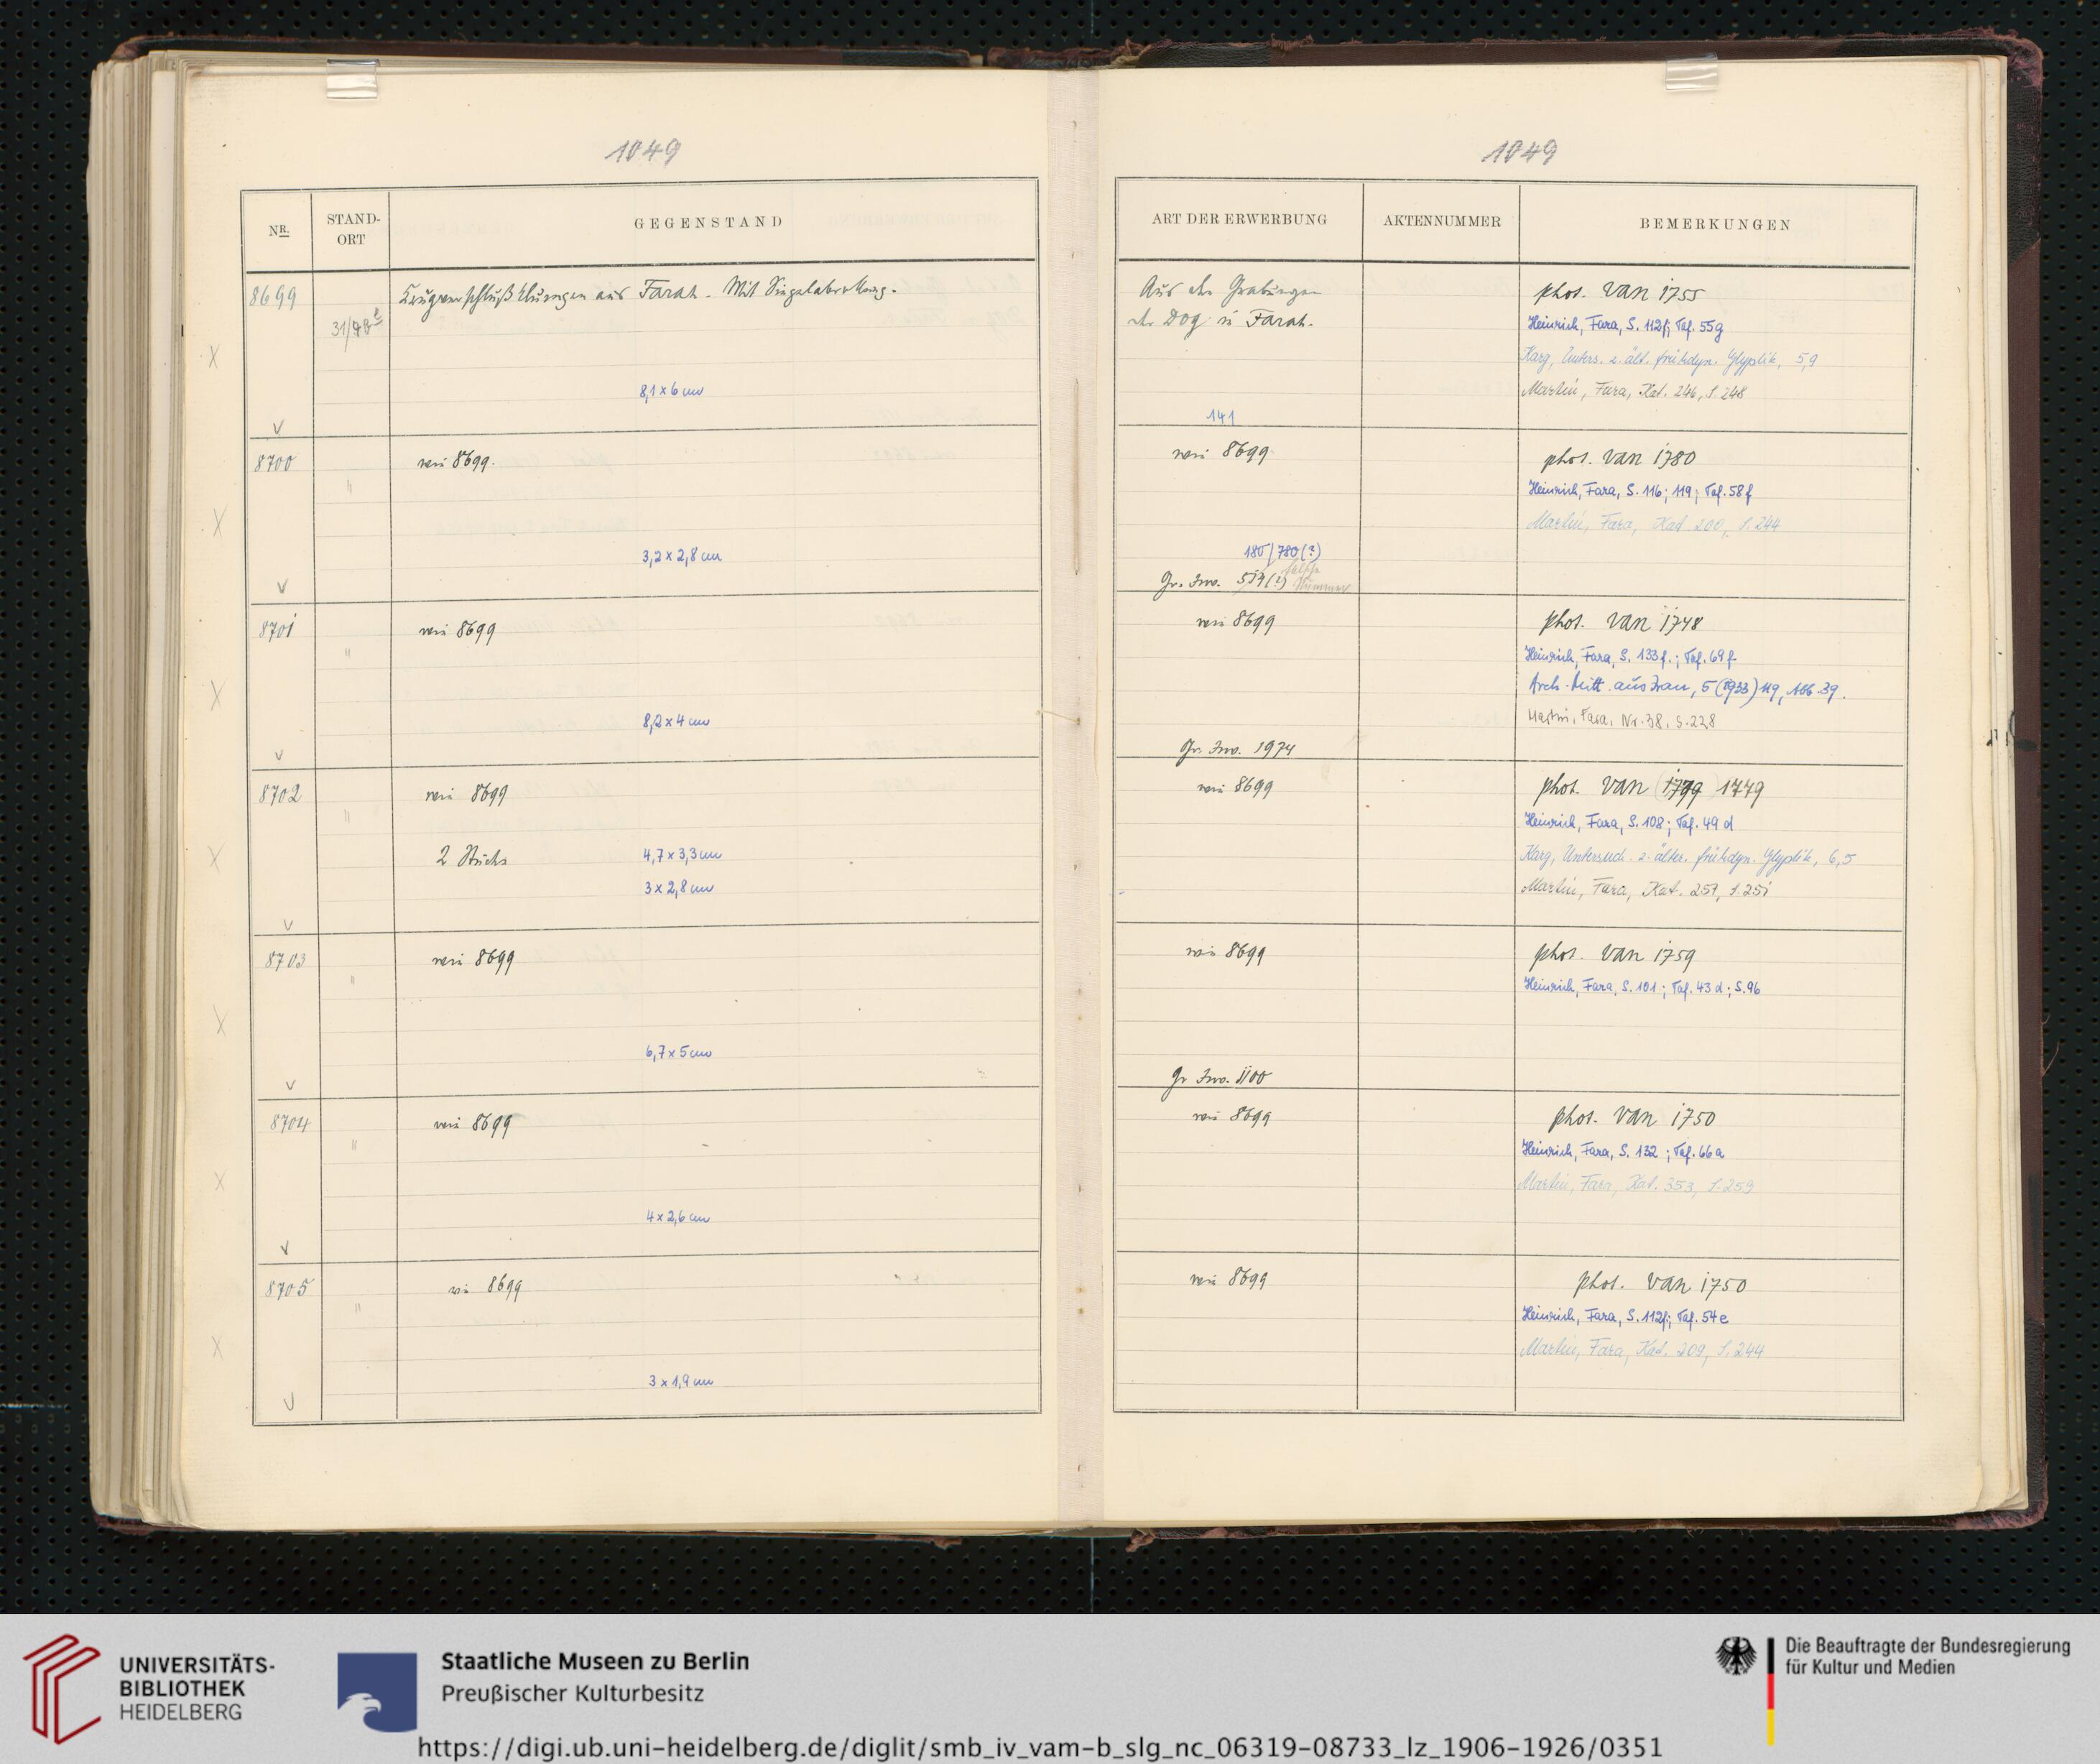 1049
NR.
STAND-
ORT
GEGENSTAND
8699
31/
aus Farah. Mit Siegelabrollung.
8,1 x 6 cm
V
8700
"
wie 8699.
3,2 x 2,8 cm
V
8701
"
wie 8699
8,2 x 4 cm
V
8702
"
wie 8699
2 Stücke
4,7 x 3,3 cm
3 x 2,8 cm
V
8703
"
wie 8699
6,7 x 5 cm
V
8704
"
wie 8699
4 x 2,6 cm
V
8705
"
wie 8699
3 x 1,9 cm
V
1049
ART DER ERWERBUNG
AKTENNUMMER
BEMERKUNGEN
Aus den Grabungen
der DOG in Farah.
141
phot. Van 1755
Heinrich, Fara, S. 112f; Taf. 55g
Karg, Unters. z. ält. frühdyn. Glyptik, 5,9
Martin, Fara, Kat. 246, S. 248
wie 8699
180/780(?)
Gr. Inv. (?) falsche Nummer
phot. Van 1780
Heinrich, Fara, S. 116; 119; Taf. 58f
Martin, Fara, Kat 200, S. 244
wie 8699
Gr. Inv. 1974
phot. Van 1748
Heinrich, Fara, S. 133f.; Taf. 69f
Arch. Mitt. aus Iran, 5 (1933) 119, Abb. 39.
Martin, Fara, Nr. 38, S. 228
wie 8699
phot. Van (1799) 1749
Heinrich, Fara, S. 108; Taf. 49 d
Karg, Untersuch. z. älter. frühdyn. Glyptik, 6,5
Martin, Fara, Kat. 257, S. 251
wie 8699
Gr Inv. 1100
phot. Van 1759
Heinrich, Fara, S. 101; Taf. 43 d; S. 96
wie 8699
phot. Van 1750
Heinrich, Fara, S. 132; Taf. 66a
Martin, Fara, Kat. 353, S. 259
wie 8699
phot. Van 1750
Heinrich, Fara, S. 112f; Taf. 54 e
Martin, Fara, Kat. 209, S. 244
UNIVERSITÄTS-
BIBLIOTHEK
HEIDELBERG
Staatliche Museen zu Berlin
Preußischer Kulturbesitz
Die Beauftragte der Bundesregierung
für Kultur und Medien
https://digi.ub.uni-heidelberg.de/diglit/smb_iv_vam-b_slg_nc_06319-08733_lz_1906-1926/0351